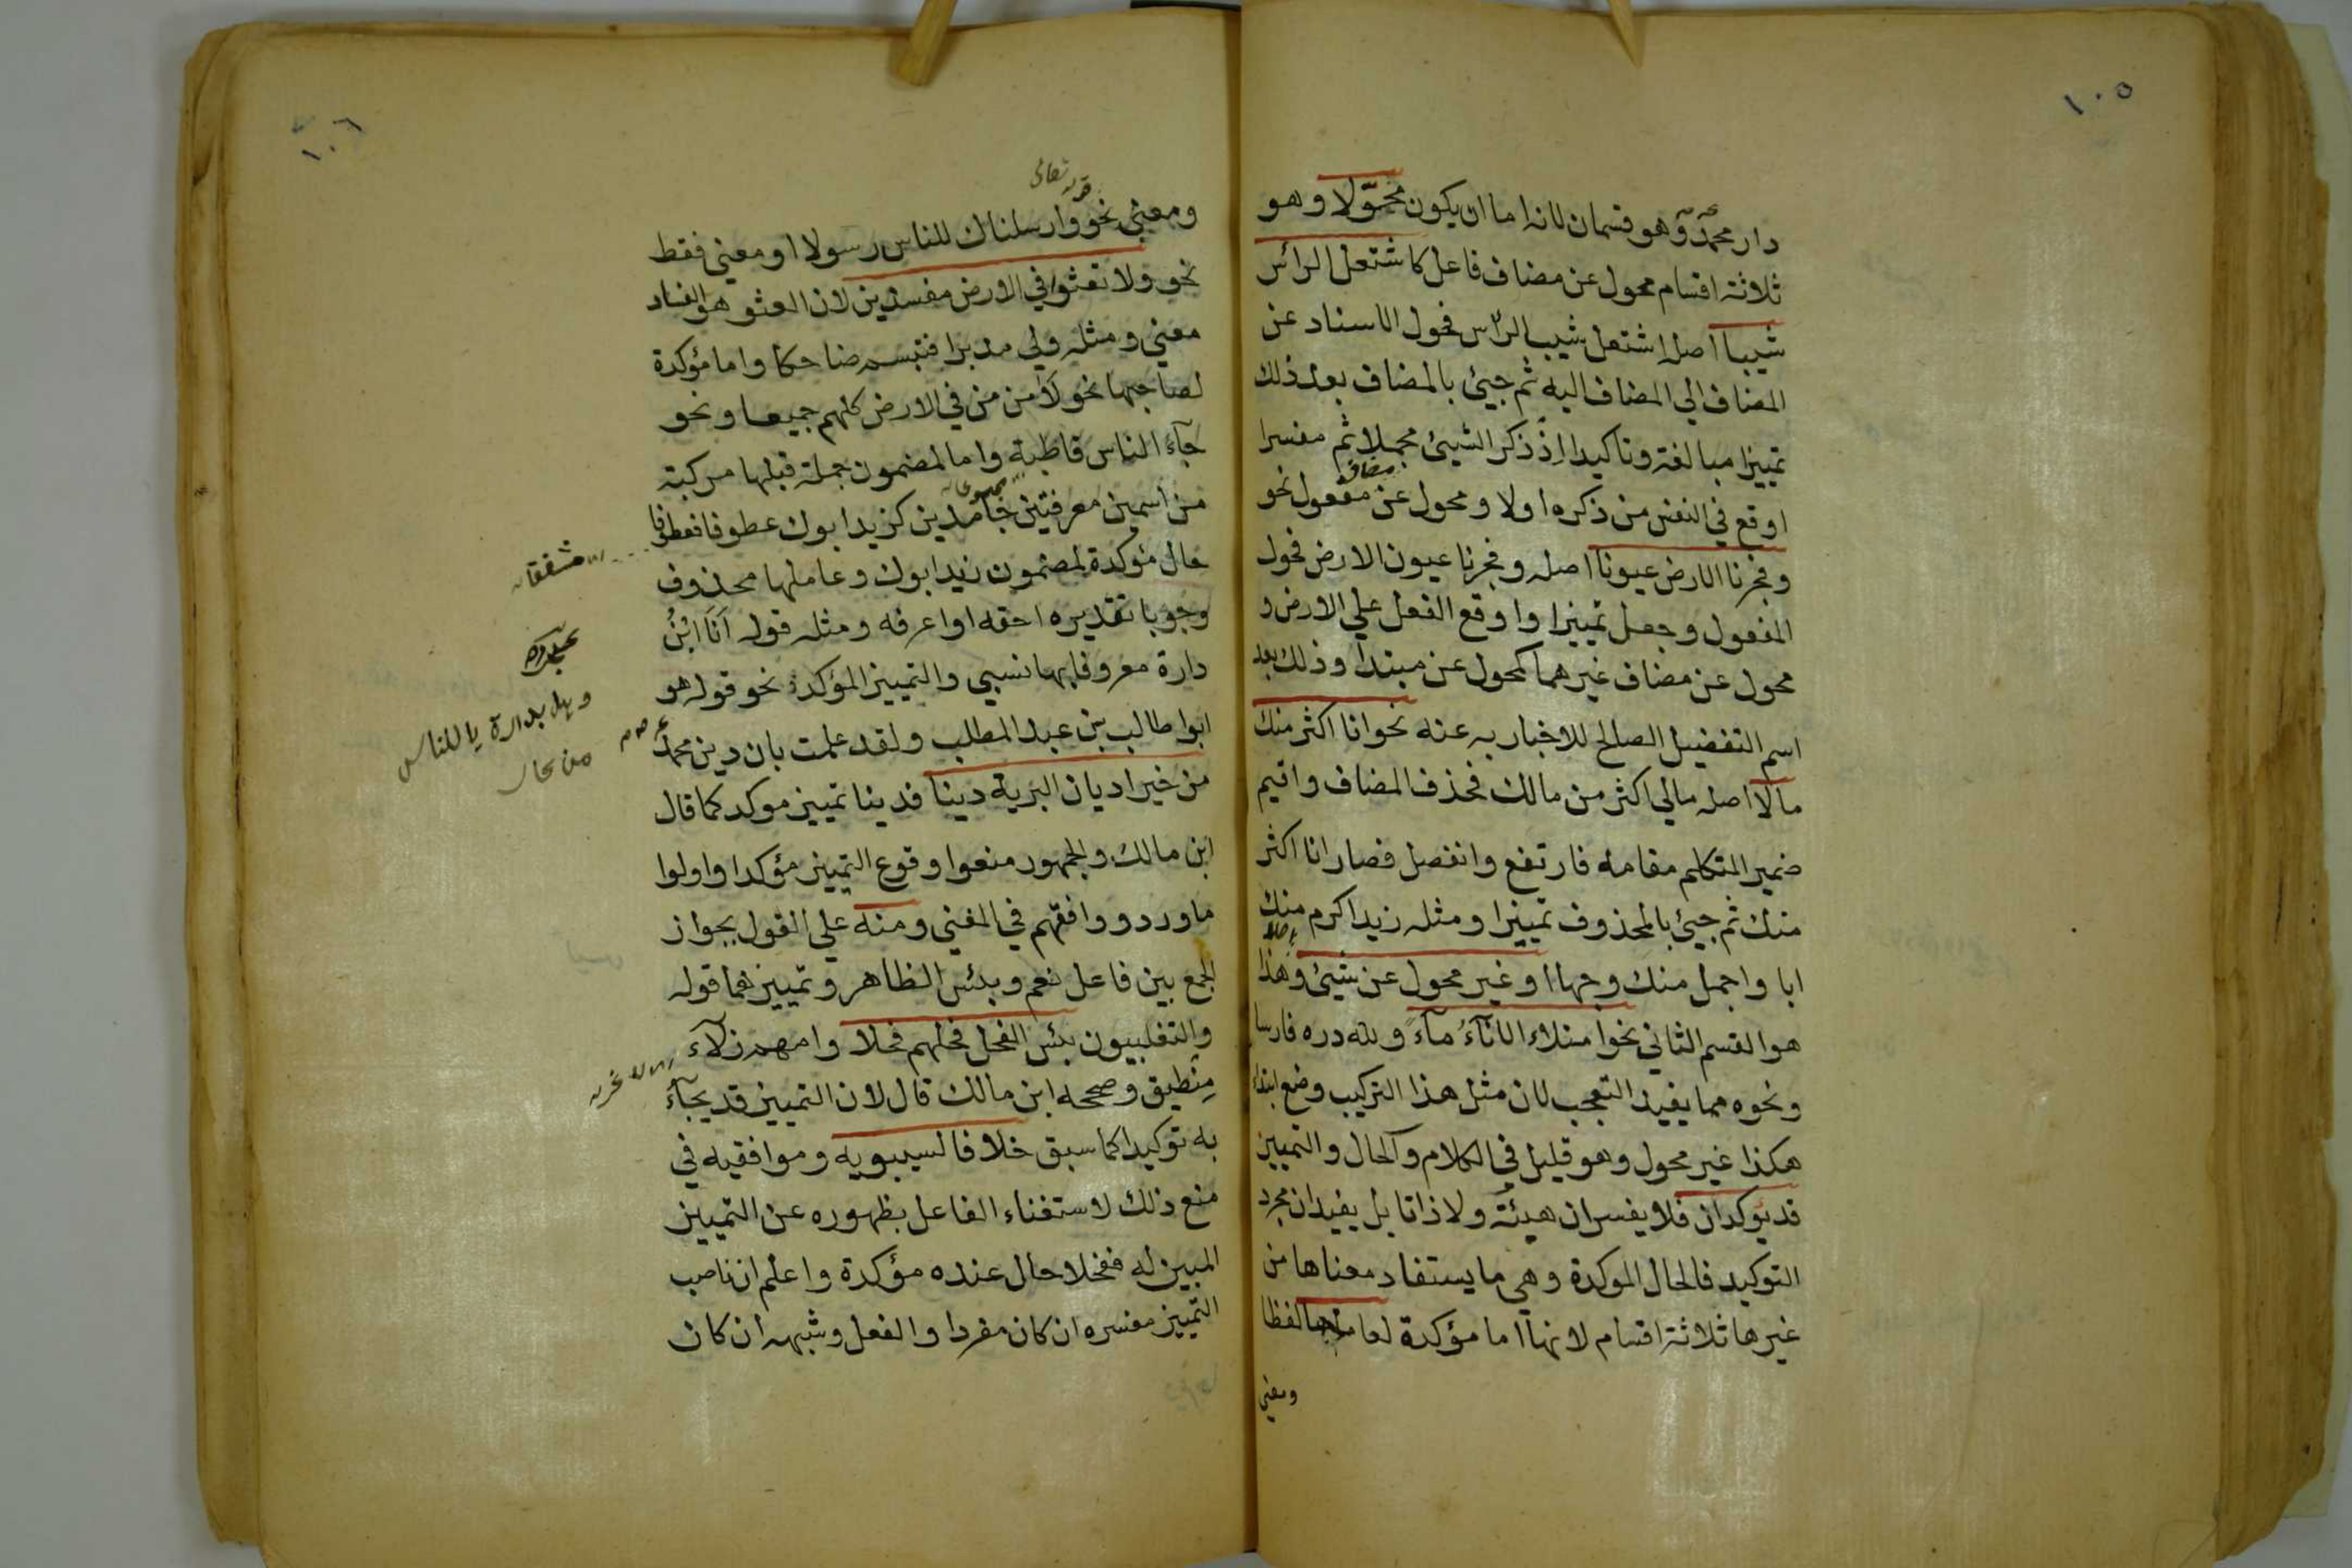 ١٠٥
دار محمدٌ وهو قسمان لانه اما ان يكون محوّلا وهو
ثلاثة اقسام محول عن مضاف فاعل كاشتعل الرأس
شيبا اصله اشتعل شيب الرأس فحول الاسناد عن
المضاف الي المضاف اليه ثم جيئ بالمضاف بعد ذلك
تمييزا مبالغة وتاكيدا اذ ذكر الشيئ مجملا ثم مفسرا
اوقع في النفس من ذكره اولا ومحول عن مفعول نحو
مضاف
وفجرنا الارض عيونا اصله وفجرنا عيون الارض فحول
المفعول وجعل تمييزا واوقع الفعل علي الارض و
محول عن مضاف غيرهما كمحول عن مبتدأ وذلك بعد
اسم التفضيل الصالح للاخبار به عنه نحو انا اكثر منك
مالا اصله مالي اكثر من مالك فحذف المضاف واقيم
ضمير المتكلم مقامه فارتفع وانفصل فصار انا اكثر
منك ثم جيئ بالمحذوف تمييزا ومثله زيد اكرم منك
ابا واجمل منك وجها او غير محول عن شيئ وهذا
اصلا
هو القسم الثاني نحو امتلاء الاناءُ ماءً ولله دره فارسا
ونحوه مما يفيد التعجب لان مثل هذا التركيب وضع ابتداء
هكذا غير محول وهو قليل في الكلام والحال والتمييز
قد يوكدان فلا يفسران هيئة ولا ذاتا بل يفيدان مجرد
التوكيد فالحال الموكدة وهي ما يستفاد معناها من
غيرها ثلاثة اقسام لانها اما مؤكدة لعاملها لفظا
ومعني
١٠٦
قوله تعالى
ومعني نحو وارسلناك للناس رسولا او معني فقط
نحو ولا تعثوا في الارض مفسدين لان العثو هو الفساد
معني ومثله ولي مدبرا فتبسم ضاحكا واما مؤكدة
لصاحبها نحو لآمن من في الارض كلهم جميعا ونحو
جاء الناس قاطبة واما لمضمون جملة قبلها مركبة
من اسمين معرفتين جامدين كزيد ابوك عطوفا فعطوفا
حال مؤكدة لمضمون زيد ابوك وعاملها محذوف
وجوبا تقديره احقه او اعرفه ومثله قوله اَنَا ابْنُ
دارة معروفا بها نسبي والتمييز المؤكد نحو قوله هو
ابوا طالب بن عبد المطلب ولقد علمت بان دين محمد
من خير اديان البرية دينا فدينا تمييز موكد كما قال
ابن مالك والجمهور منعوا وقوع التمييز مؤكدا واولوا
ما ورد ووافقهم في المغني ومنه علي القول بجواز
الجمع بين فاعل نعم وبئس الظاهر وتمييزهما قوله
والتغلبيون بئس الفحل فحلهم فحلا وامهم زلآء
مِنطيق وصححه ابن مالك قال لان التمييز قد يجآء
به توكيدا كما سبق خلافا لسيبويه وموافقيه في
منع ذلك لاستغناء الفاعل بظهوره عن التمييز
المبين له ففحلا حال عنده مؤكدة واعلم ان ناصب
التمييز مفسره ان كان مفردا والفعل وشبهه ان كان
وهل بدارة يا للناس
من عار